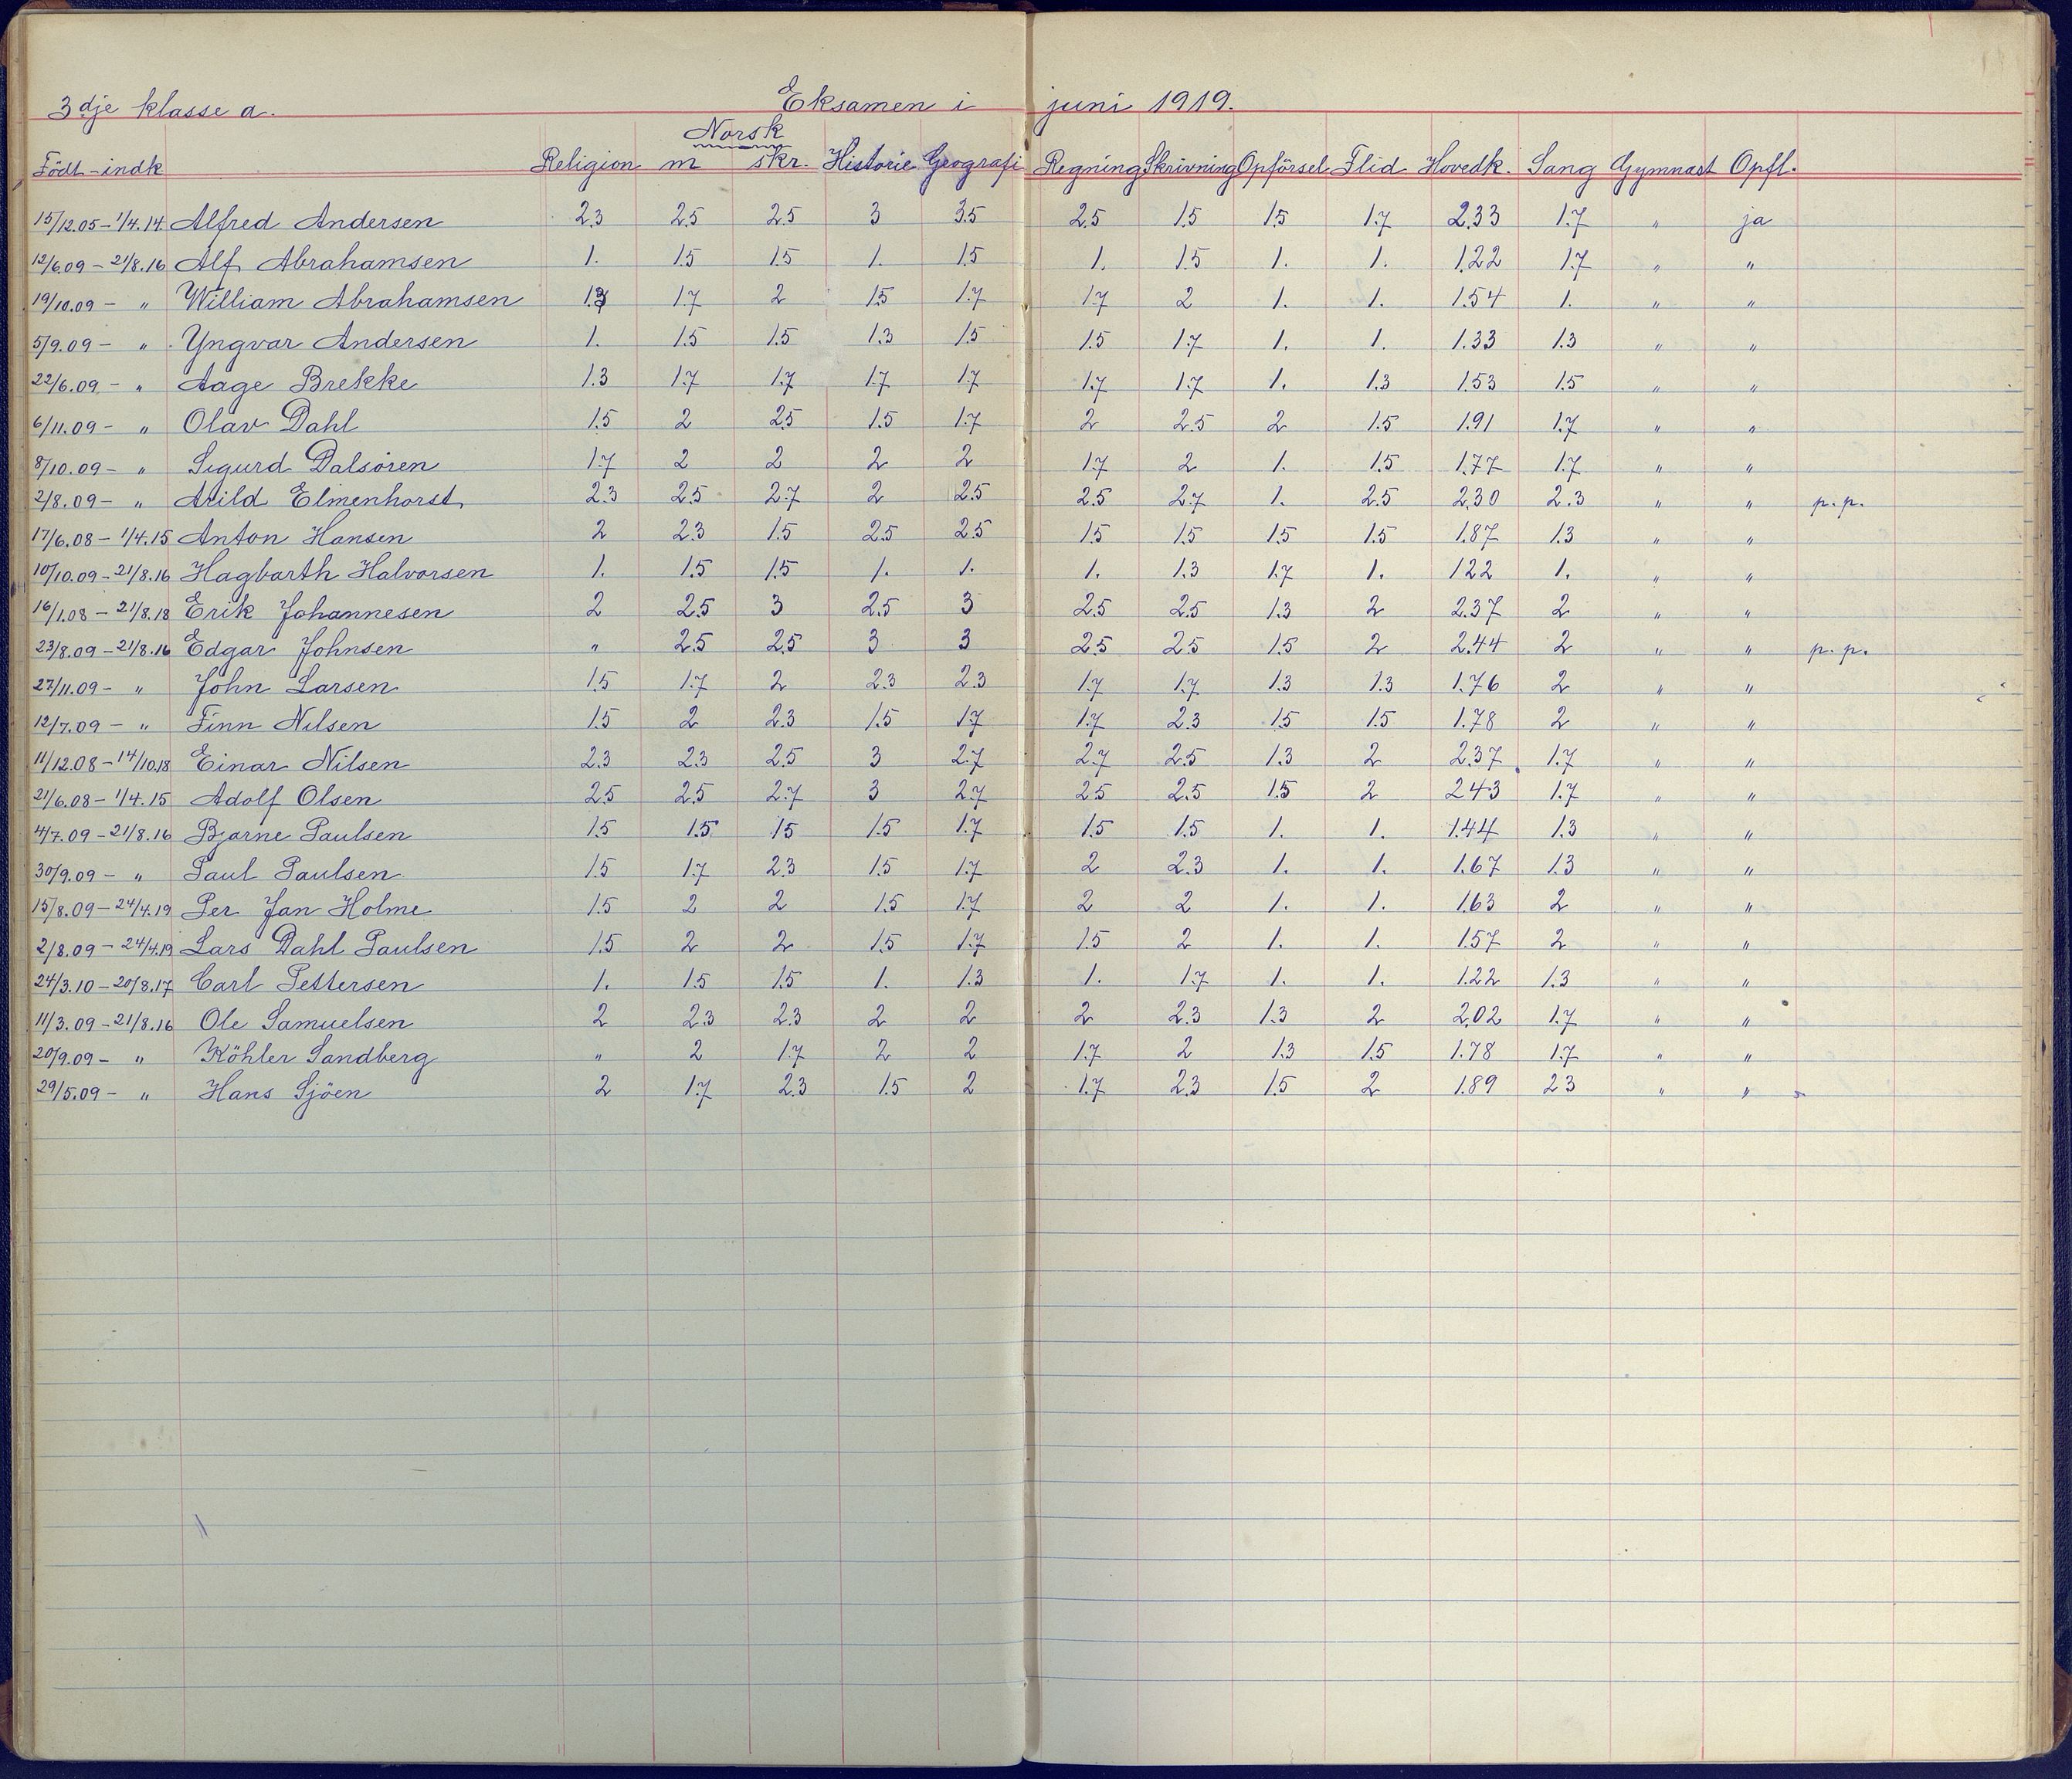 3dje klasse a. Eksamen i juni 1919.
Norsk
Födt - indk Religion m skr. Historie Geografi Regning Skrivning Opförsel Flid Hovedk. Sang Gymnast Opfl.
15/12.05 - 1/4.14 Alfred Andersen 2.3 2.5 2.5 3 3.5 2.5 1.5 1.5 1.7 2.33 1.7 " ja
12/6.09 - 21/8.16 Alf Abrahamsen 1. 1.5 1.5 1. 1.5 1. 1.5 1. 1. 1.22 1.7 " "
19/10.09 - " William Abrahamsen 1.7 2 1.5 1.7 1.7 2 1. 1. 1.54 1. " "
5/9.09 - " Yngvar Andersen 1. 1.5 1.5 1.3 1.5 1.5 1.7 1. 1. 1.33 1.3 " "
22/6.09 - " Aage Brekke 1.3 1.7 1.7 1.7 1.7 1.7 1.7 1. 1.3 1.53 1.5 " "
6/11.09 - " Olav Dahl 1.5 2 2.5 1.5 1.7 2 2.5 2 1.5 1.91 1.7 " "
8/10.09 - " Sigurd Dalsören 1.7 2 2 2 2 1.7 2 1. 1.5 1.77 1.7 " "
2/8.09 - " Arild Elmenhorst 2.3 2.5 2.7 2 2.5 2.5 2.7 1. 2.5 2.30 2.3 " " p.p.
17/6.08 - 1/4.15 Anton Hansen 2 2.3 1.5 2.5 2.5 1.5 1.5 1.5 1.5 1.87 1.3 " "
10/10.09 - 21/8.16 Hagbarth Halvorsen 1. 1.5 1.5 1. 1. 1. 1.3 1.7 1. 1.22 1. " "
16/1.08 - 21/8.18 Erik Johannesen 2 2.5 3 2.5 3 2.5 2.5 1.3 2 2.37 2 " "
23/8.09 - 21/8.16 Edgar Johnsen " 2.5 2.5 3 3 2.5 2.5 1.5 2 2.44 2 " " p.p.
27/11.09 - " John Larsen 1.5 1.7 2 2.3 2.3 1.7 1.7 1.3 1.3 1.76 2 " "
12/7.09 - " Finn Nilsen 1.5 2 2.3 1.5 1.7 1.7 2.3 1.5 1.5 1.78 2 " "
11/12.08 - 14/10.18 Einar Nilsen 2.3 2.3 2.5 3 2.7 2.7 2.5 1.3 2 2.37 1.7 " "
21/6.08 - 1/4.15 Adolf Olsen 2.5 2.5 2.7 3 2.7 2.5 2.5 1.5 2 2.43 1.7 " "
4/7.09 - 21/8.16 Bjarne Paulsen 1.5 1.5 1.5 1.5 1.7 1.5 1.5 1. 1. 1.44 1.3 " "
30/9.09 - " Paul Paulsen 1.5 1.7 2.3 1.5 1.7 2 2.3 1. 1. 1.67 1.3 " "
15/8.09 - 24/4.19 Per Jan Holme 1.5 2 2 1.5 1.7 2 2 1. 1. 1.63 2 " "
2/8.09 - 24/4.19 Lars Dahl Paulsen 1.5 2 2 1.5 1.7 1.5 2 1. 1. 1.57 2 " "
24/3.10 - 20/8.17 Carl Pettersen 1. 1.5 1.5 1. 1.3 1. 1.7 1. 1. 1.22 1.3 " "
11/3.09 - 21/8.16 Ole Samuelsen 2 2.3 2.3 2 2 2 2.3 1.3 2 2.02 1.7 " "
20/9.09 - " Köhler Sandberg " 2 1.7 2 2 1.7 2 1.3 1.5 1.78 1.7 " "
29/5.09 - " Hans Sjöen 2 1.7 2.3 1.5 2 1.7 2.3 1.5 2 1.89 2.3 " "